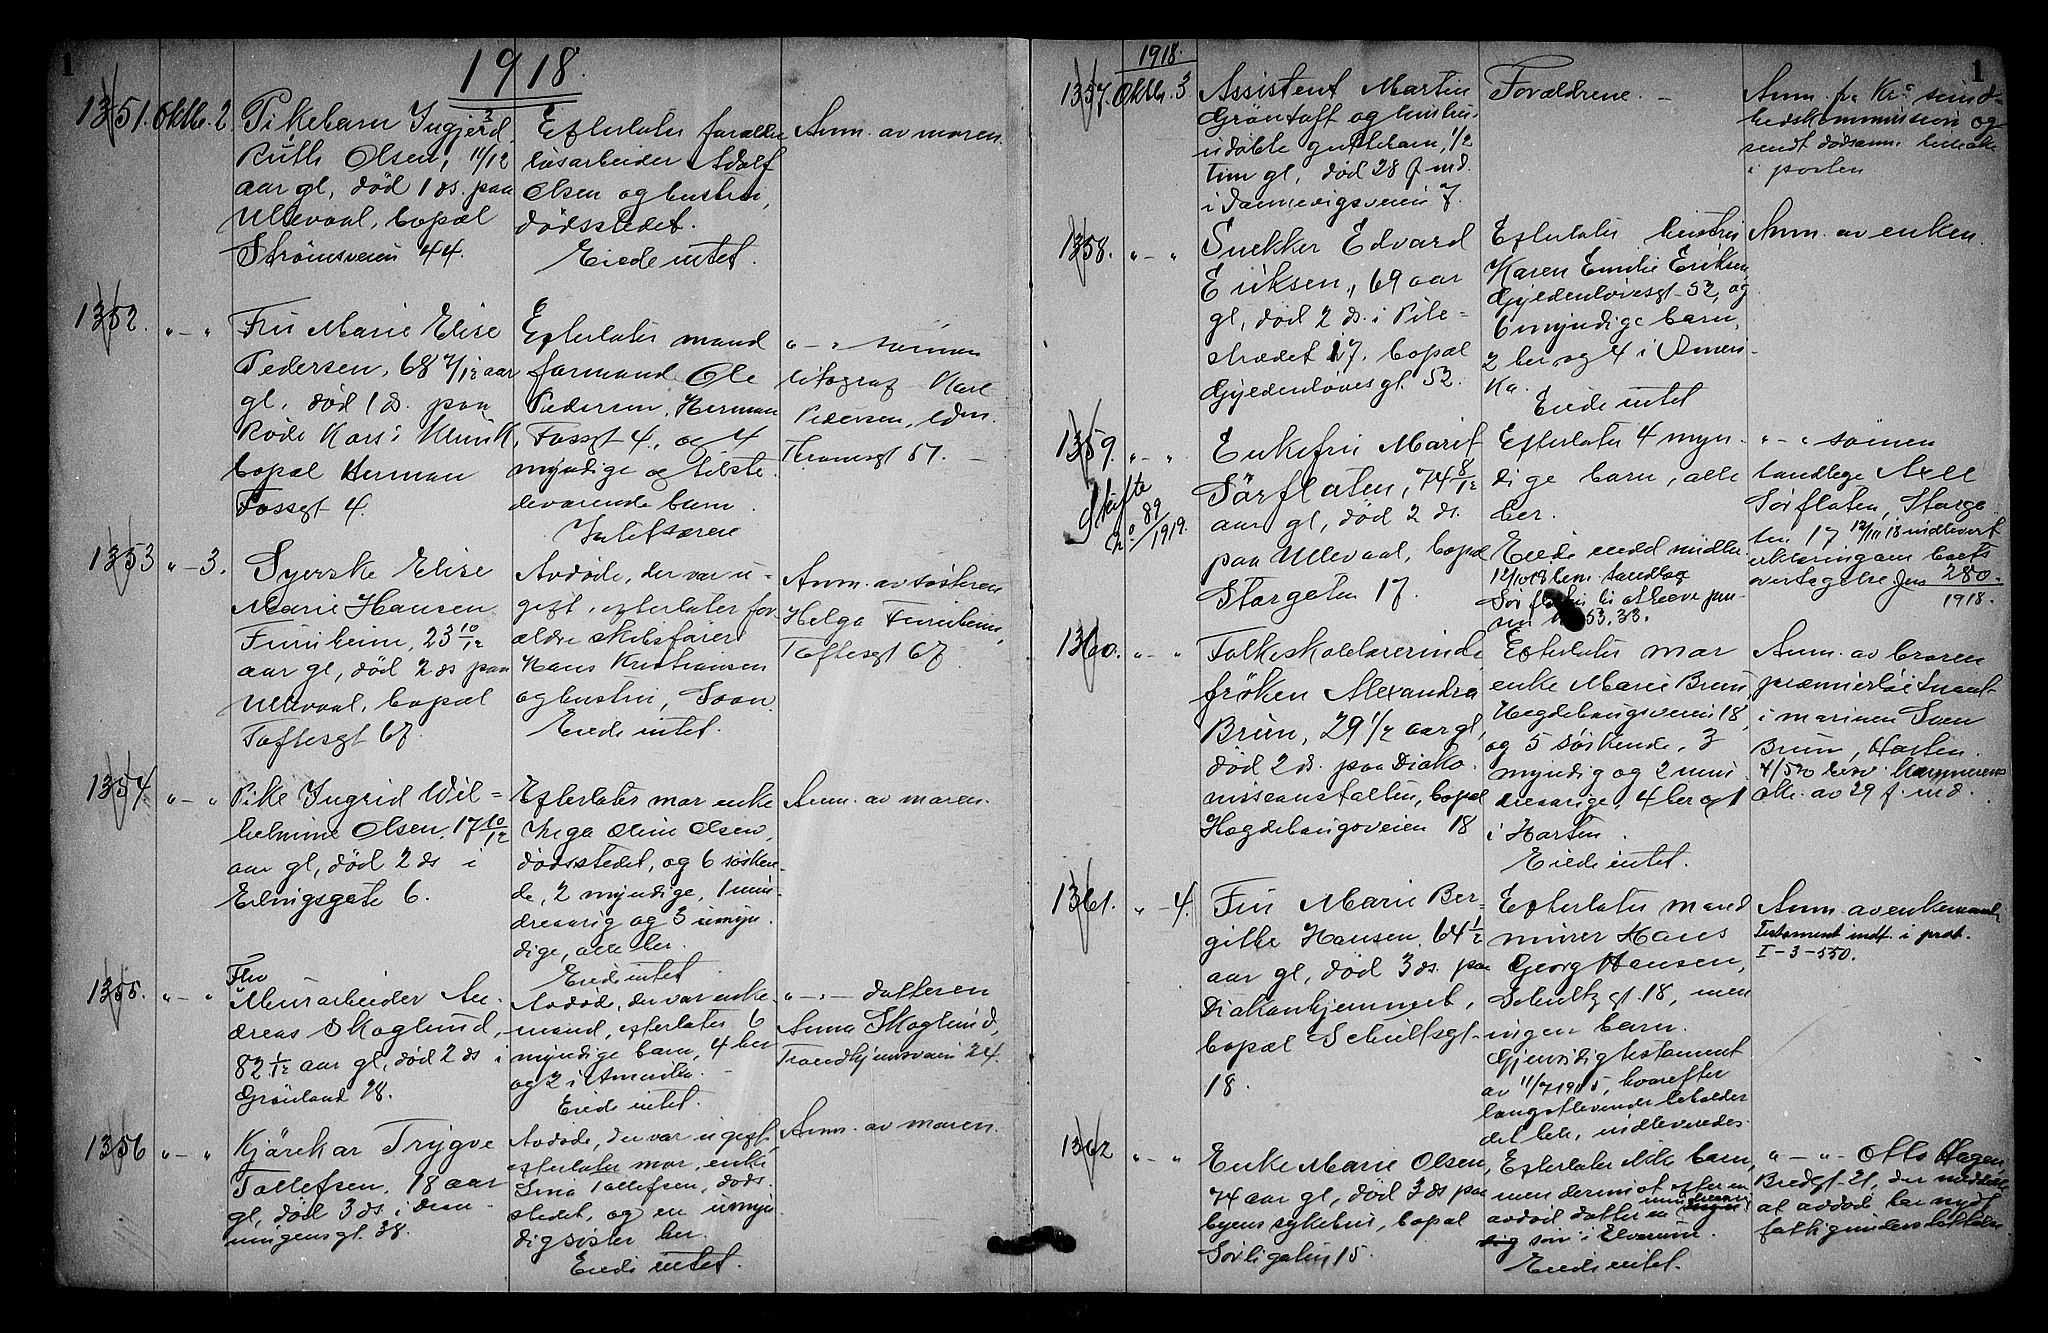 1
1918.
1351. Oktb. 2
Pikebarn Ingjerd
Ruth Olsen, 11/12
aar gl, död 1 ds. paa
Ullevaal, bopæl
Strömsveien 44.
Efterlater forældre
løsarbeider Adolf
Olsen og hustru,
dödsstedet.
Eiede intet.
Anm. av moren.
1352. " — "
Fru Marie Elise
Pedersen, 68 7/12 aar
gl, död 1 ds. paa
Röde Kors' Klinik,
bopæl Herman
Fossgt 4.
Efterlater mand
formand Ole
Pedersen, Herman
Fossgt 4, og 4
myndige og tilste-
deværende barn.
" — " sönnen
litograf Karl
Pedersen, Edm.
Thranesgt 57. —
1353 " — 3.
Syerske Elise
Marie Hansen
Furuheim, 23 10/12
aar gl, död 2 ds paa
Ullevaal, bopæl
Toftesgt 67.
Avdöde, der var u-
gift, efterlater for-
ældre skibsförer
Hans Kristiansen
og hustru, Soon.
Eiede intet.
Anm. av søsteren
Helga Furuheim,
Toftesgt 67.
1354 " — "
Pike Ingrid Wil-
helmine Olsen, 17 10/12
aar gl, död 2 ds i
Erlingsgate 6.
Efterlater mor enke
Inga Oline Olsen,
dödsstedet, og 6 søsken-
de, 2 myndige, 1 min-
dreaarig og 3 umyn-
dige, alle her.
Eiede intet.
Anm. av moren.
1355. " — "
Fhv
Murarbeider An-
dreas Skoglund,
82 1/12 aar gl, död 2 ds i
Grönland 28.
Avdöde, der var enke-
mand, efterlater 6
myndige barn, 4 her
og 2 i Amerika. —
Eiede intet.
" — " datteren
Anna Skoglund,
Trondhjemsveien 24.
1356 " — "
Kjörekar Trygve
Tollefsen, 18 aar
gl, död 3 ds i Dron-
ningensgt 38.
Avdöde, der var ugift,
efterlater mor, enke
Lina Tollefsen, döds-
stedet, og en umyn-
dig søster her.
Eiede intet.
Anm. av moren.
1
1918.
1357. Oktb. 3
Assistent Martin
Gröntoft og hustrus
udöbte guttebarn, 1/2
time gl, död 28 f. md.
i Dannevigsveien 7.
Forældrene. —
Anm. fra Kr.a sund-
hedskommission og
sendt dödsanm.
i posten
1358. " — "
Snekker Edvard
Eriksen, 69 aar
gl, död 2 ds. i Pile-
strædet 17. bopæl
Gyldenløvesgt. 52.
Efterlater hustru
Karen Emilie Eriksen,
Gyldenløvesgt 52, og
6 myndige barn,
2 her og 4 i Ameri-
ka.
Eiede intet
Anm. av enken.
1359. " — "
Skifte
No 89/1919.
Enkefru Marit
Sörflaten, 74 8/12
aar gl, död 2 ds.
paa Ullevaal, bopæl
Storgaten 17.
Efterlater 4 myn-
dige barn, alle
her.
12/10 18 bem. tandlæge
Sörflaten
53,33.
" — " sönnen
tandlæge Axel
Sörflaten, Storga-
ten 17 12/10 18 indlevert
erklæring om boets
overtagelse. Jnr 280
1918.
1360. " — "
Folkeskolelærerinde
fröken Alexandra
Brun, 29 1/2 aar gl,
död 2 ds. paa Diako-
nisseanstalten, bopæl
Hægdehaugsveien 18
Efterlater mor
enke Marie Brun,
Hegdehaugsveien 18,
og 5 söskende, 3
myndig og 2 min-
dreaarige, 4 her og 1
i Horten.
Eiede intet.
Anm. av broren
præmierlöitnant
i marinen Sven
Brun, Horten.
av 29 f. md.
1361. " — 4.
Fru Marie Ber-
gitte Hansen, 64 1/2
aar gl, död 3 ds. paa
Diakonhjemmet,
bopæl Schultzgt.
18.
Efterlater mand
murer Hans
Georg Hansen,
Schultzgt 18, men
ingen barn.
Gjensidig testament
av 11/7 1915, hvorefter
længstlevende beholder
det hele, indleveredes.
Anm. av enkemand.
Testament indf. i prot.
I-3-550.
1362 " — "
Enke Marie Olsen,
74 aar gl, död 3 ds paa
byens sykehus, bopæl
Sörligaten 15.
Efterlater ikke barn,
men derimot efter en
avdöd datter en mindreaarig
sön i Elverum.
Eiede intet.
" — " Otto Hagen,
Bredgt 21, der meddelte
at avdöde har nydt
fattigunderstöttelse